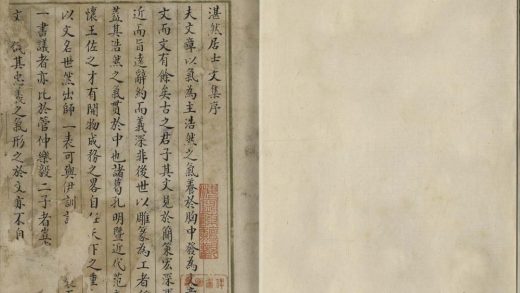 湛然居士文集序
夫文章以氣為主浩然之氣養於胸中發為文章
文而文有餘矣古之君子其文見於簡策宏深
近而旨遠辭約而義深非後世以雕篆為工者
蓋其浩然之氣貫於中也諸葛孔明暨近代范
懷王佐之才有開物成務之畧自任天下之重
以文名世然出師一表可與伊訓
一書議者亦比於管仲樂毅二子者
文 其忠義之氣形之於文亦不自